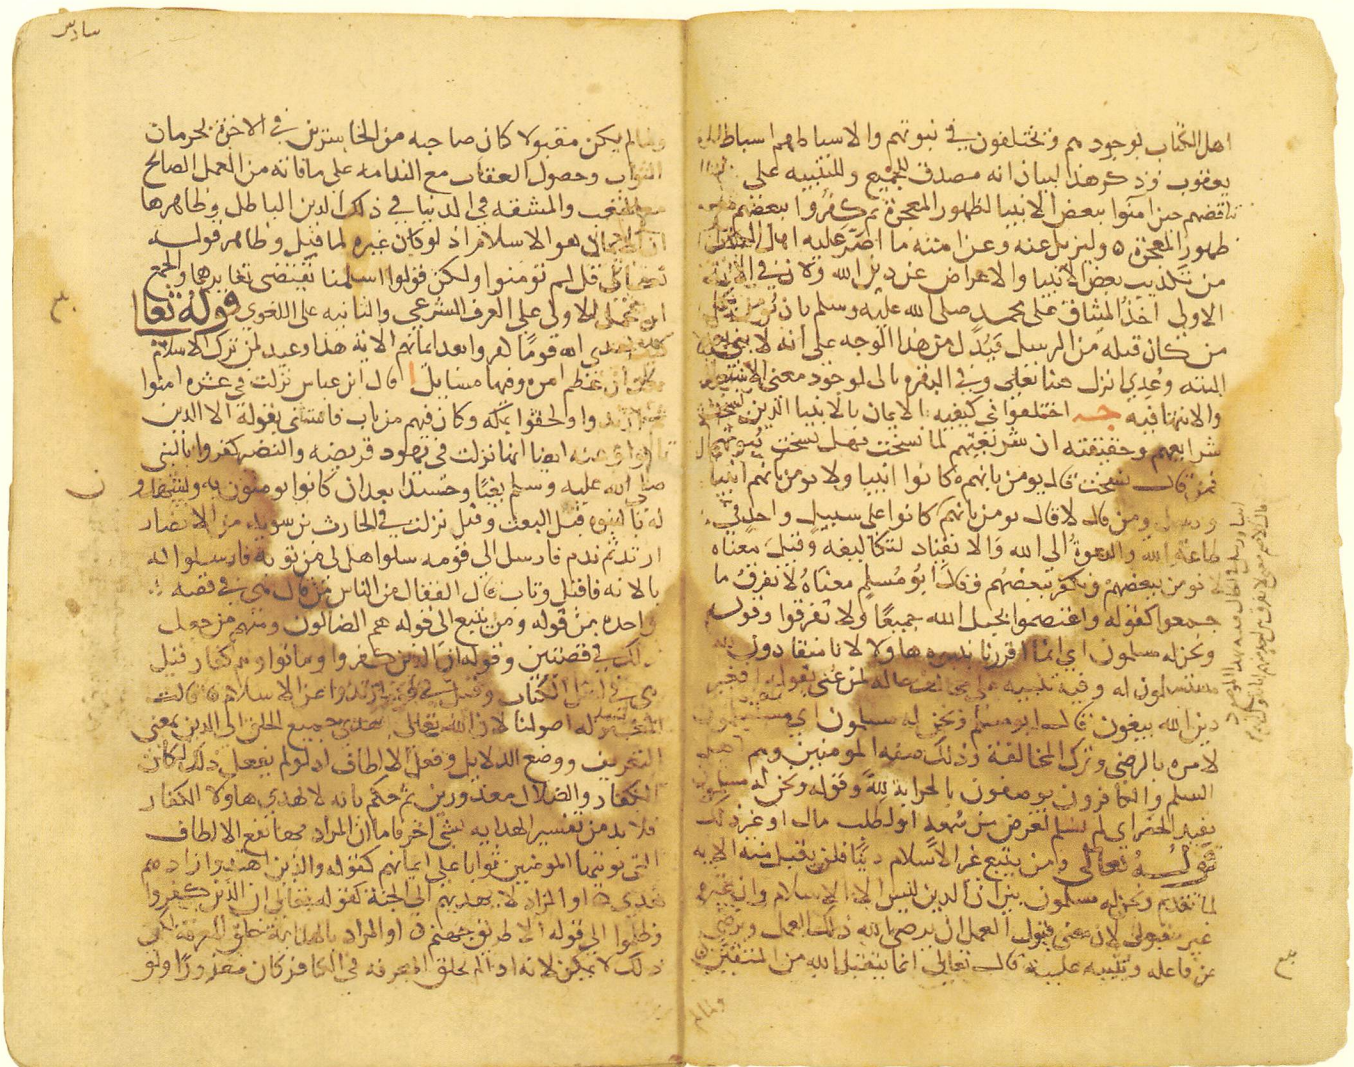 اهل الكتاب لوجودهم ومختلفون في نبوتهم والاسباط هم اسباط
يعقوب وذكر هذا لبيان انه مصدق للجميع وللتنبيه على
تناقضهم حين امنوا ببعض الانبيا لظهور المعجزة ثم كفروا ببعضهم
ظهور المعجزة ٥ وليزيل عنه وعن امته ما اصر عليه اهل
من تكذيب بعض الانبيا والاعراض عن دين الله ولان في الاية
الاولى اخذ الميثاق على محمد صلى الله عليه وسلم بان
من كان قبله من الرسل فيدل من هذا الوجه على انه لا نبي
البته وعدي انزل هنا بعلى وفي البقرة بالى لوجود معنى
والانتها فيه اختلفوا في كيفيه الايمان بالانبيا الذين نسخت
شرايعهم وحقيقته ان شريعتهم لما نسخت فهل نسخت نبوتهم
فمن قال نسخت قال يومن بانهم كانوا انبيا ولا يومن بانهم انبيا
ومن قال لا قال يومن بانهم كانوا على سبيل واحد في
طاعة الله والدعوة الى الله والانقياد لتكاليفه وقيل معناه
لا نومن ببعضهم ونكفر ببعضهم وقال ابو مسلم معناه لا نفرق ما
جمعوا كقوله واعتصموا بحبل الله جميعا ولا تفرقوا وقوله
ونحن له مسلمون اي انما اقررنا بنبوة هاولا لانا منقادون
مستسلمون له وفيه تنبيه على حاله لمن عنى بقوله افغير
دين الله يبغون قال ابو مسلم ونحن له مسلمون اي مستسلمون
لامره بالرضى وترك المخالفة وذلك صفه المومنين وهم اهل
السلم والكافرون يوصفون بالحرابة لله وقوله ونحن له مسلمون
يفيد الحصر اي لم نسلم لغرض من سمعه او لطلب مال او غير ذلك
قوله تعالى ومن يبتغ غير الاسلام دينا فلن يقبل منه الاية
لما تقدم ونحن له مسلمون بين ان الدين ليس الا الاسلام وان غيره
غير مقبول لان معنى قبول العمل ان يرضى الله ذلك العمل ويرضى
عن فاعله ويثيبه عليه قال تعالى انما يتقبل الله من المتقين
ومالم
سادس
ومالم يكن مقبولا كان صاحبه من الخاسرين في الاخرة بحرمان
الثواب وحصول العقاب مع الندامه على ما فاته من العمل الصالح
مع التعب والمشقه في الدنيا في ذلك الدين الباطل وظاهرها
ان الايمان هو الاسلام اذ لو كان غيره لما قبل وظاهر قوله
تعالى قل لم تومنوا ولكن قولوا اسلمنا يقتضي تغايرهما والجمع
ان تحمل الاولى على العرف الشرعي والثانيه على اللغوي قوله تعا
كيف يهدي الله قوما كفروا بعد ايمانهم الاية هذا وعيد لمن ترك الاسلام
امره وفيها مسايل ا قال ابن عباس نزلت في عشره امنوا
ثم ارتدوا ولحقوا بمكه وكان فيهم من تاب فاستثنى بقوله الا الذين
تابوا وعنه ايضا انها نزلت في يهود قريضه والنضير كفروا بالنبي
صلى الله عليه وسلم بغيا وحسدا بعد ان كانوا يومنون به ويشهدو
له بالنبوه قبل البعث وقيل نزلت في الحارث بن سويد من الانصار
ارتد ثم ندم فارسل الى قومه سلوا هل لي من توبة فارسلوا اله
بالايه فاقبل وتاب قال القفال من الناس من قال هي في قصه
واحده من قوله ومن يبتغ الى قوله هم الضالون ومنهم من جعل
ذلك في قصتين وقوله ان الذين كفروا وماتوا وهم كفار قيل
هي في اهل الكتاب وقيل في قوم ارتدوا عن الاسلام قالت
المعتزله اصولنا لان الله تعالى هدى جميع الخلق الى الدين بمعنى
التعريف ووضع الدلايل وفعل الالطاف اذ لو لم يفعل ذلك لكان
الكفار والضلال معذورين ثم حكم بانه لا يهدي هاولا الكفار
فلابد من تفسير الهدايه بشي اخر فاما ان المراد بها نفع الالطاف
التي يوتيها المومنين ثوابا على ايمانهم كقوله والذين اهتدوا زادهم
هدى او المراد لا يهديهم الى الجنة كقوله تعالى ان الذين كفروا
وظلموا الى قوله الا طريق جهنم او المراد بالهداية خلق المعرفة لكن
ذلك لا يمكن لانه اذا لم يخلق المعرفه في الكافر كان معذورا ولو